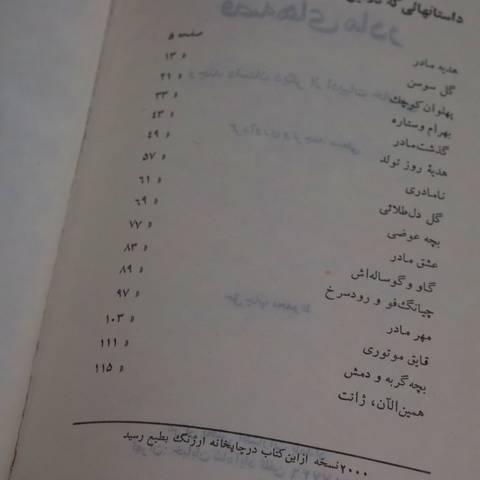 داستانهائی که
هدیه مادر صفحه ۵
گل سوسن » ۱۳
پهلوان کوچک » ۲۱
بهرام و ستاره » ۳۳
گذشت مادر » ۴۳
هدیهٔ روز تولد » ۴۹
نامادری » ۵۷
گل دل‌طلائی » ۶۱
بچه عوضی » ۶۹
عشق مادر » ۷۷
گاو و گوساله‌اش » ۸۳
چیانگ‌فو و رودسرخ » ۸۹
مهر مادر » ۹۷
قایق موتوری » ۱۰۳
بچه گربه و دمش » ۱۱۱
همین‌الآن، ژانت » ۱۱۵
۲۰۰۰ نسخه از این کتاب در چاپخانه ارژنگ بطبع رسید